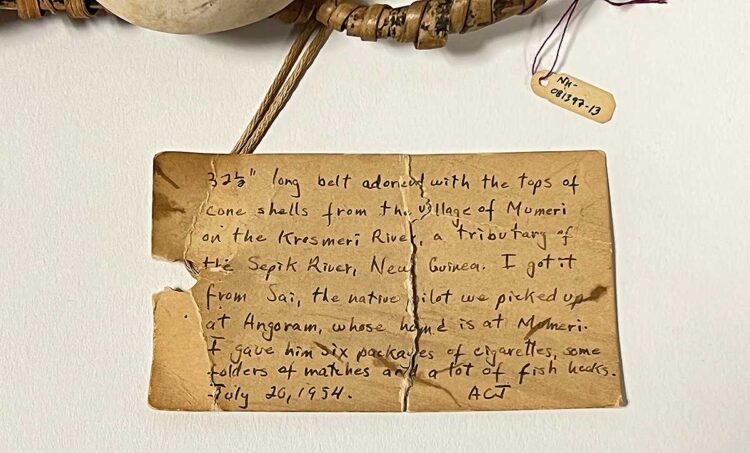 NH-
081397-13
32½" long belt adorned with the tops of
cone shells from the village of Mumeri
on the Krosmeri River, a tributary of
the Sepik River, New Guinea. I got it
from Sai, the native pilot we picked up
at Angoram, whose home is at Mumeri.
I gave him six packages of cigarettes, some
folders of matches and a lot of fish hooks.
-July 20, 1954. ACJ